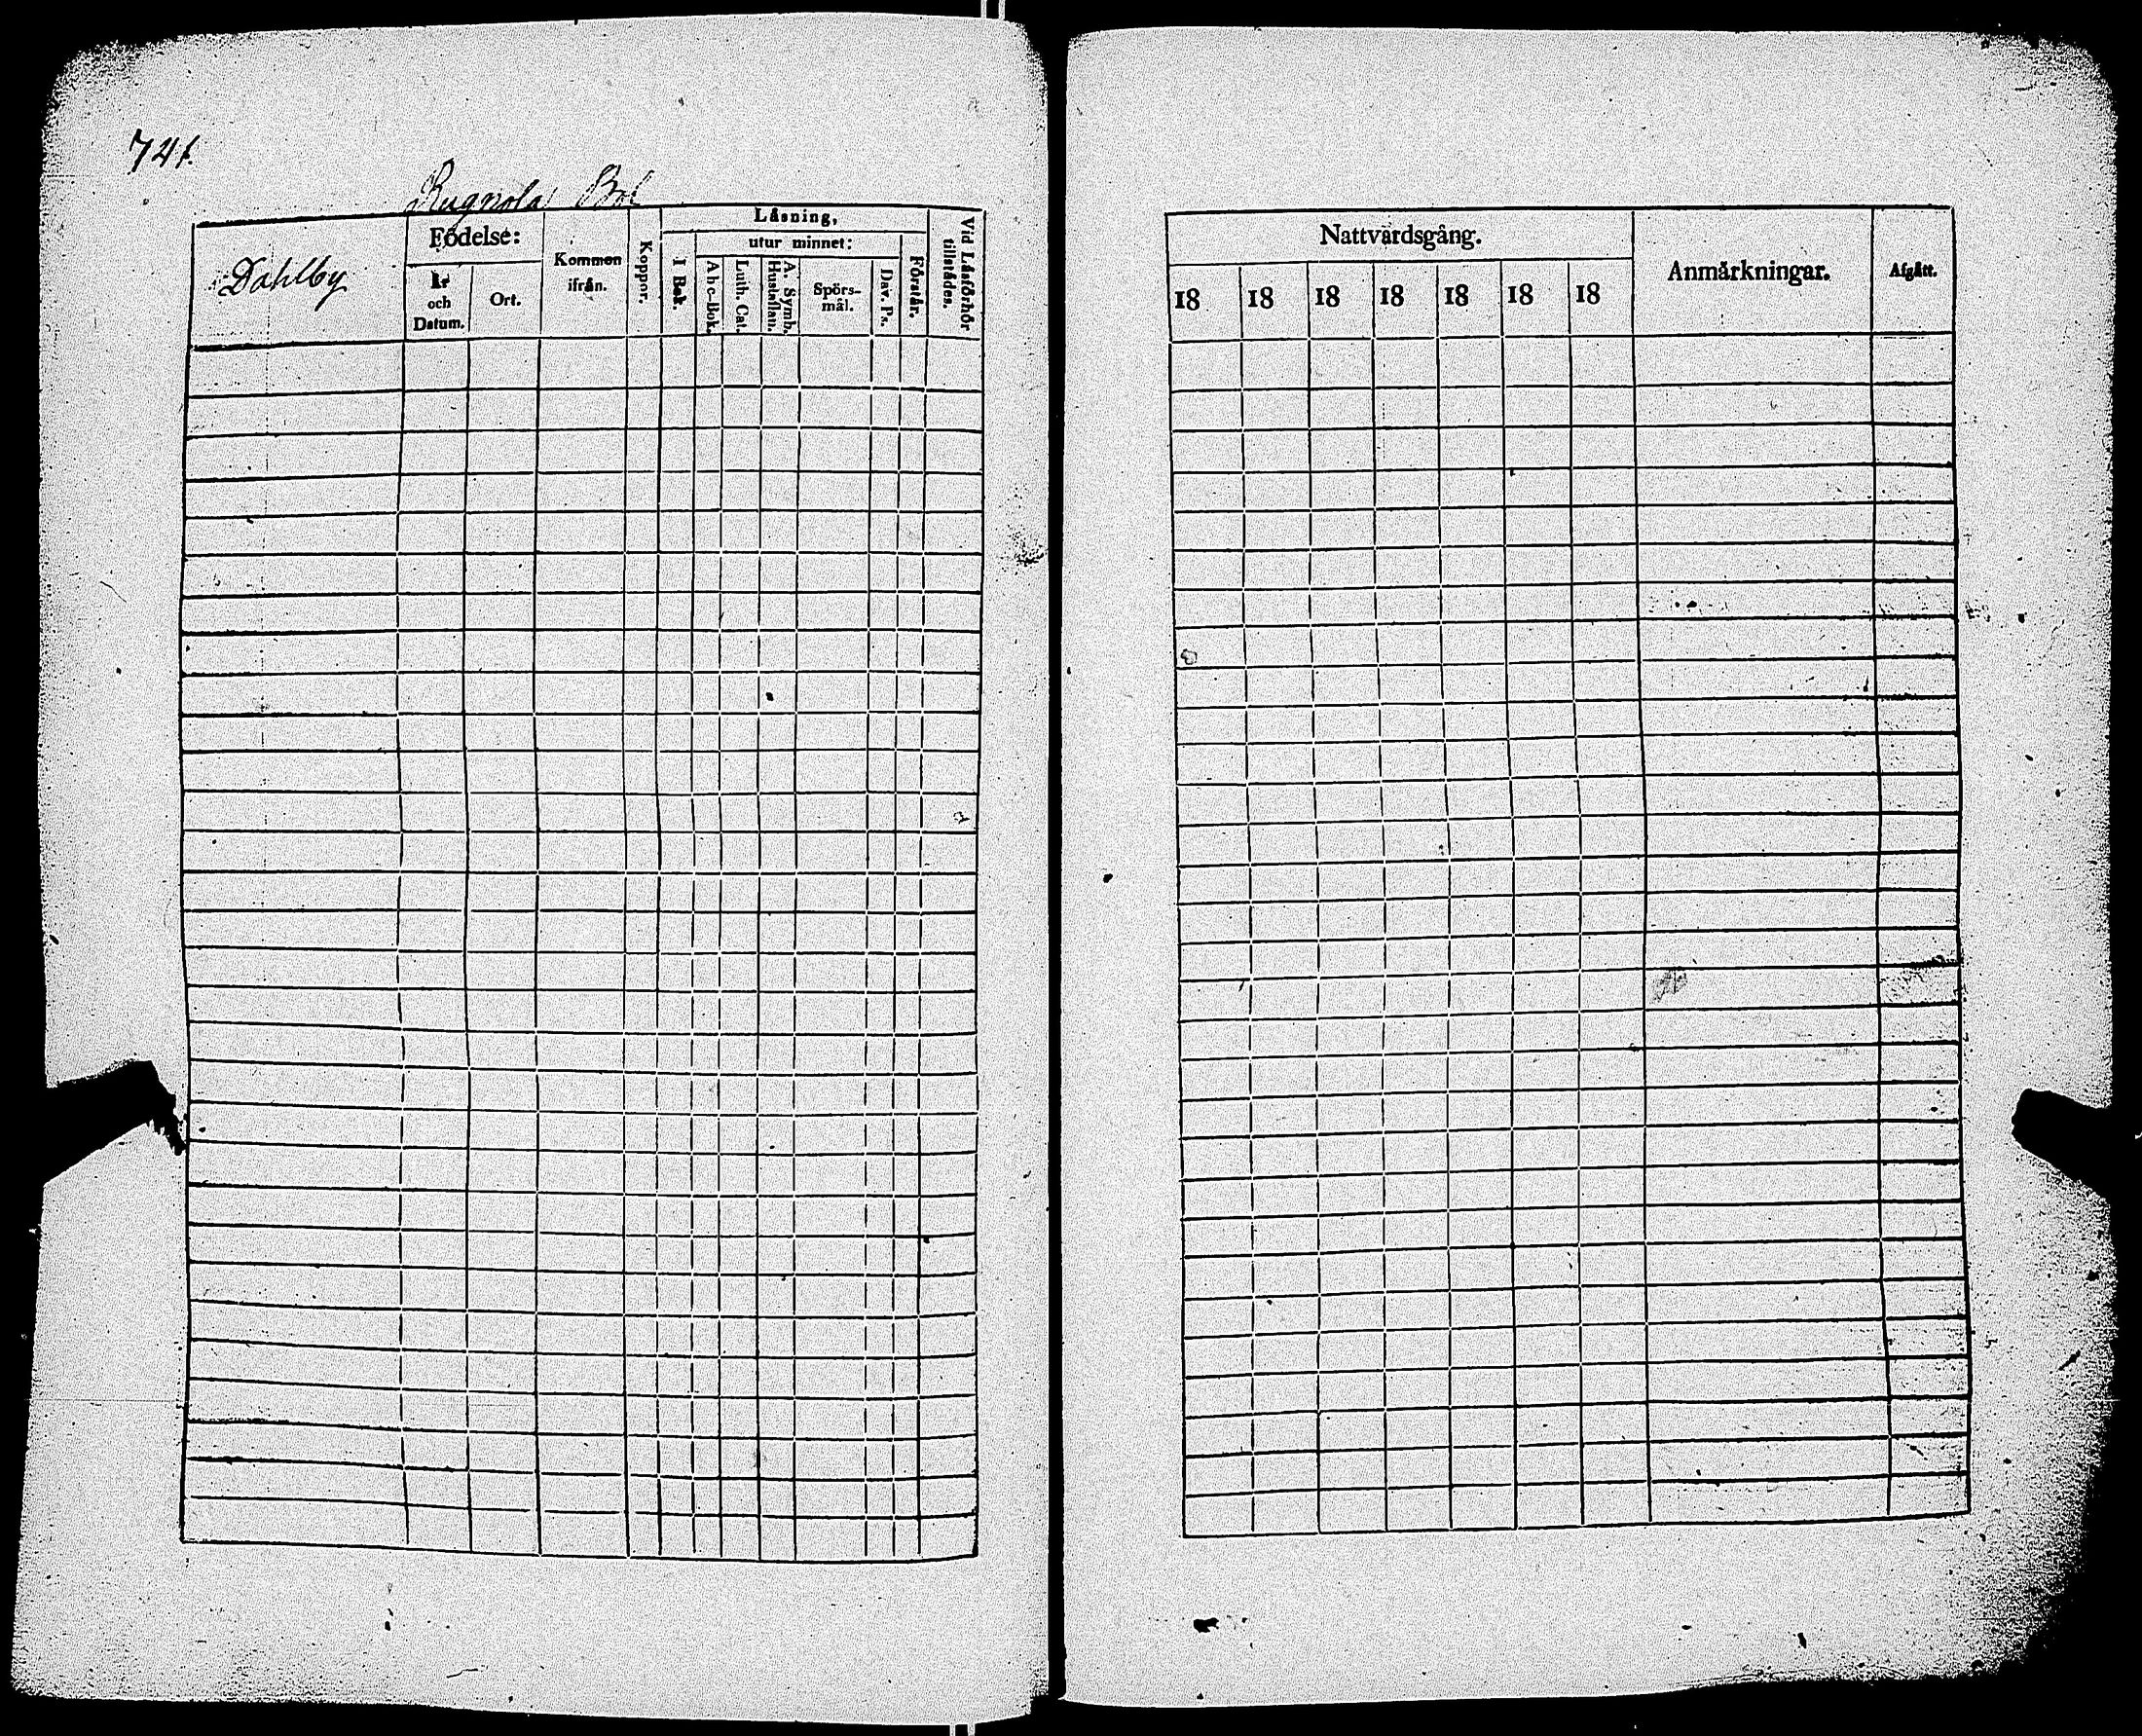 741.
Rugnola Bol
Dahlby
Födelse:
År och Datum.
Ort.
Kommen ifrån.
Koppor.
Läsning,
I Bok.
utur minnet:
Abc-Bok.
Luth. Cat.
A. Symb. Hustaflan.
Spörs-mål.
Dav. Ps.
Förstår.
Vid Läsförhör tillstädes.
Nattvardsgång.
18 18 18 18 18 18 18
Anmärkningar.
Afgått.